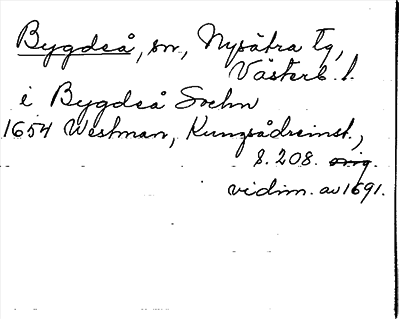 Bygdeå, sn, Nysätra tg,
Västerb. l.
i Bygdeå Sochn
1654 Westman, Kungsådreinst.,
S. 208. orig.
vidim. av 1691.